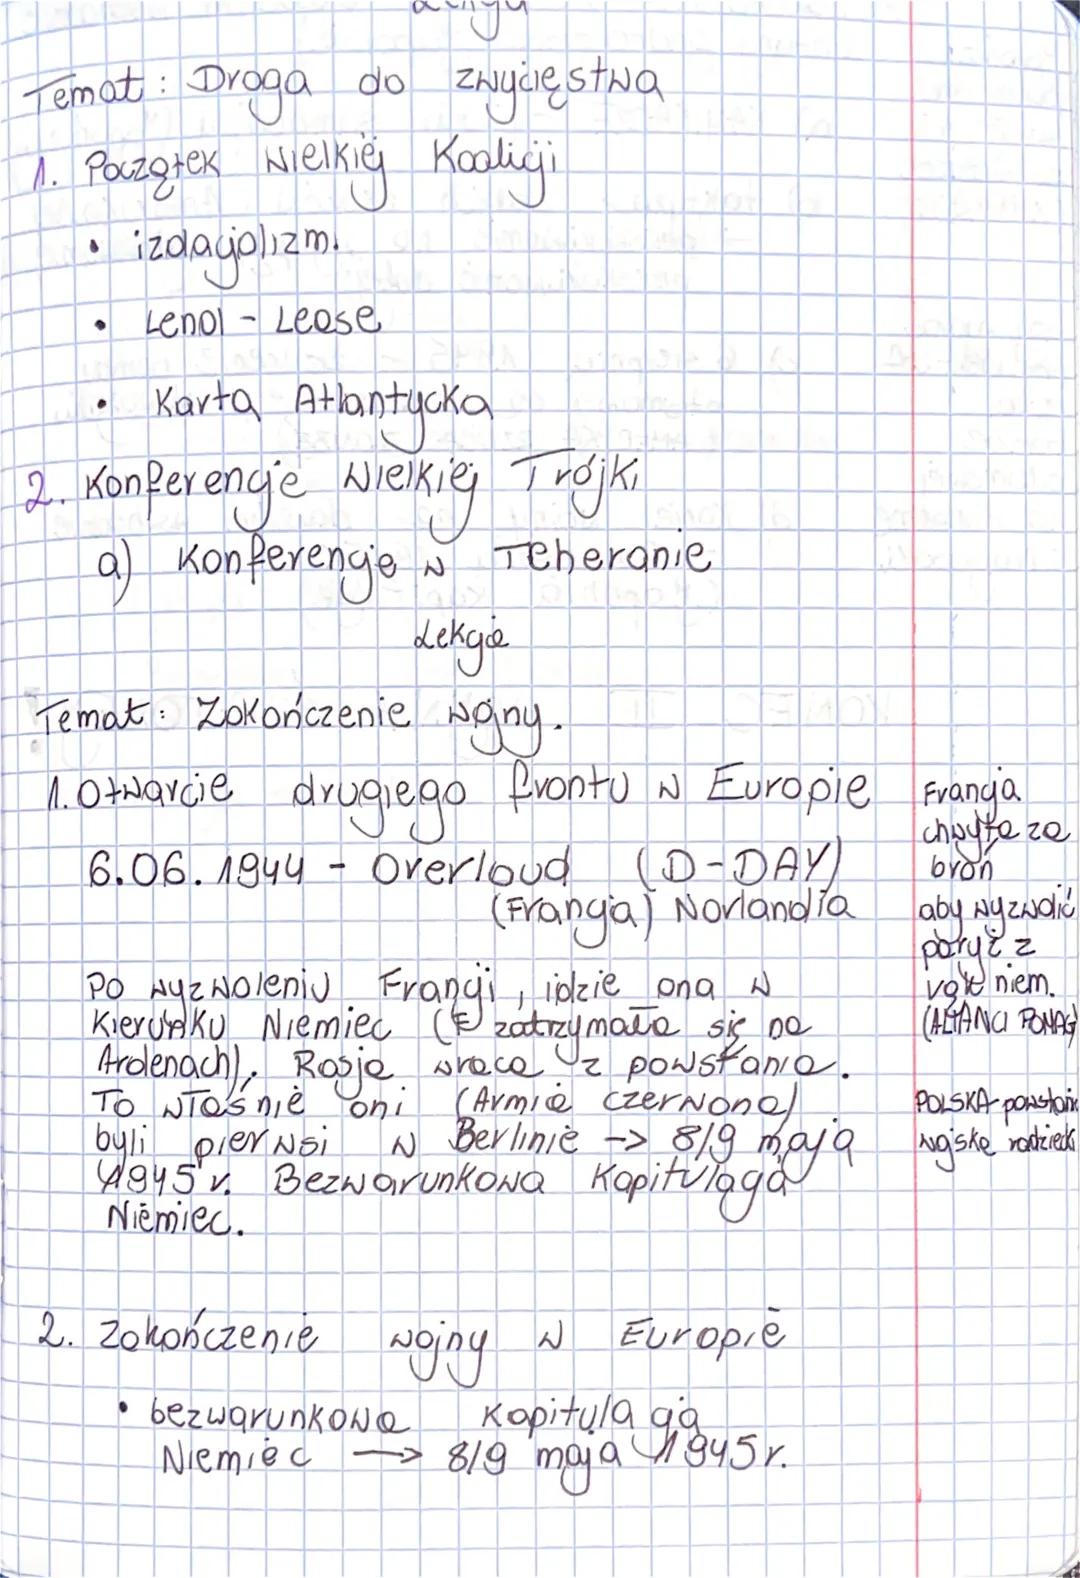 Temat: Droga do zwycięstwa
1. Początek Wielkiej Koalicji
• izolacjolizm.
• Lend - Lease
• Karta Atlantycka
2. Konferencje Wielkiej Trójki
a) Konferencje w Teheranie
Lekcja
Temat: Zakończenie wojny.
1. Otwarcie drugiego frontu w Europie
6.06.1944 - Overloud (D-DAY)
(Francja) Norlandia
Po wyzwoleniu Francji, idzie ona w
kierunku Niemiec ( zatrzymała się na
Ardenach). Rosja wraca z powstania.
To właśnie oni (Armia czerwona)
byli pierwsi w Berlinie -> 8/9 maja
1945 r. Bezwarunkowa Kapitulacja
Niemiec.
Francja
chwyta za
broń
aby wyzwolić
paryż z
niem.
POLSKA-
wojska
2. Zakończenie wojny w Europie
• bezwarunkowa Kapitulacja
Niemiec -> 8/9 maja 1945 r.